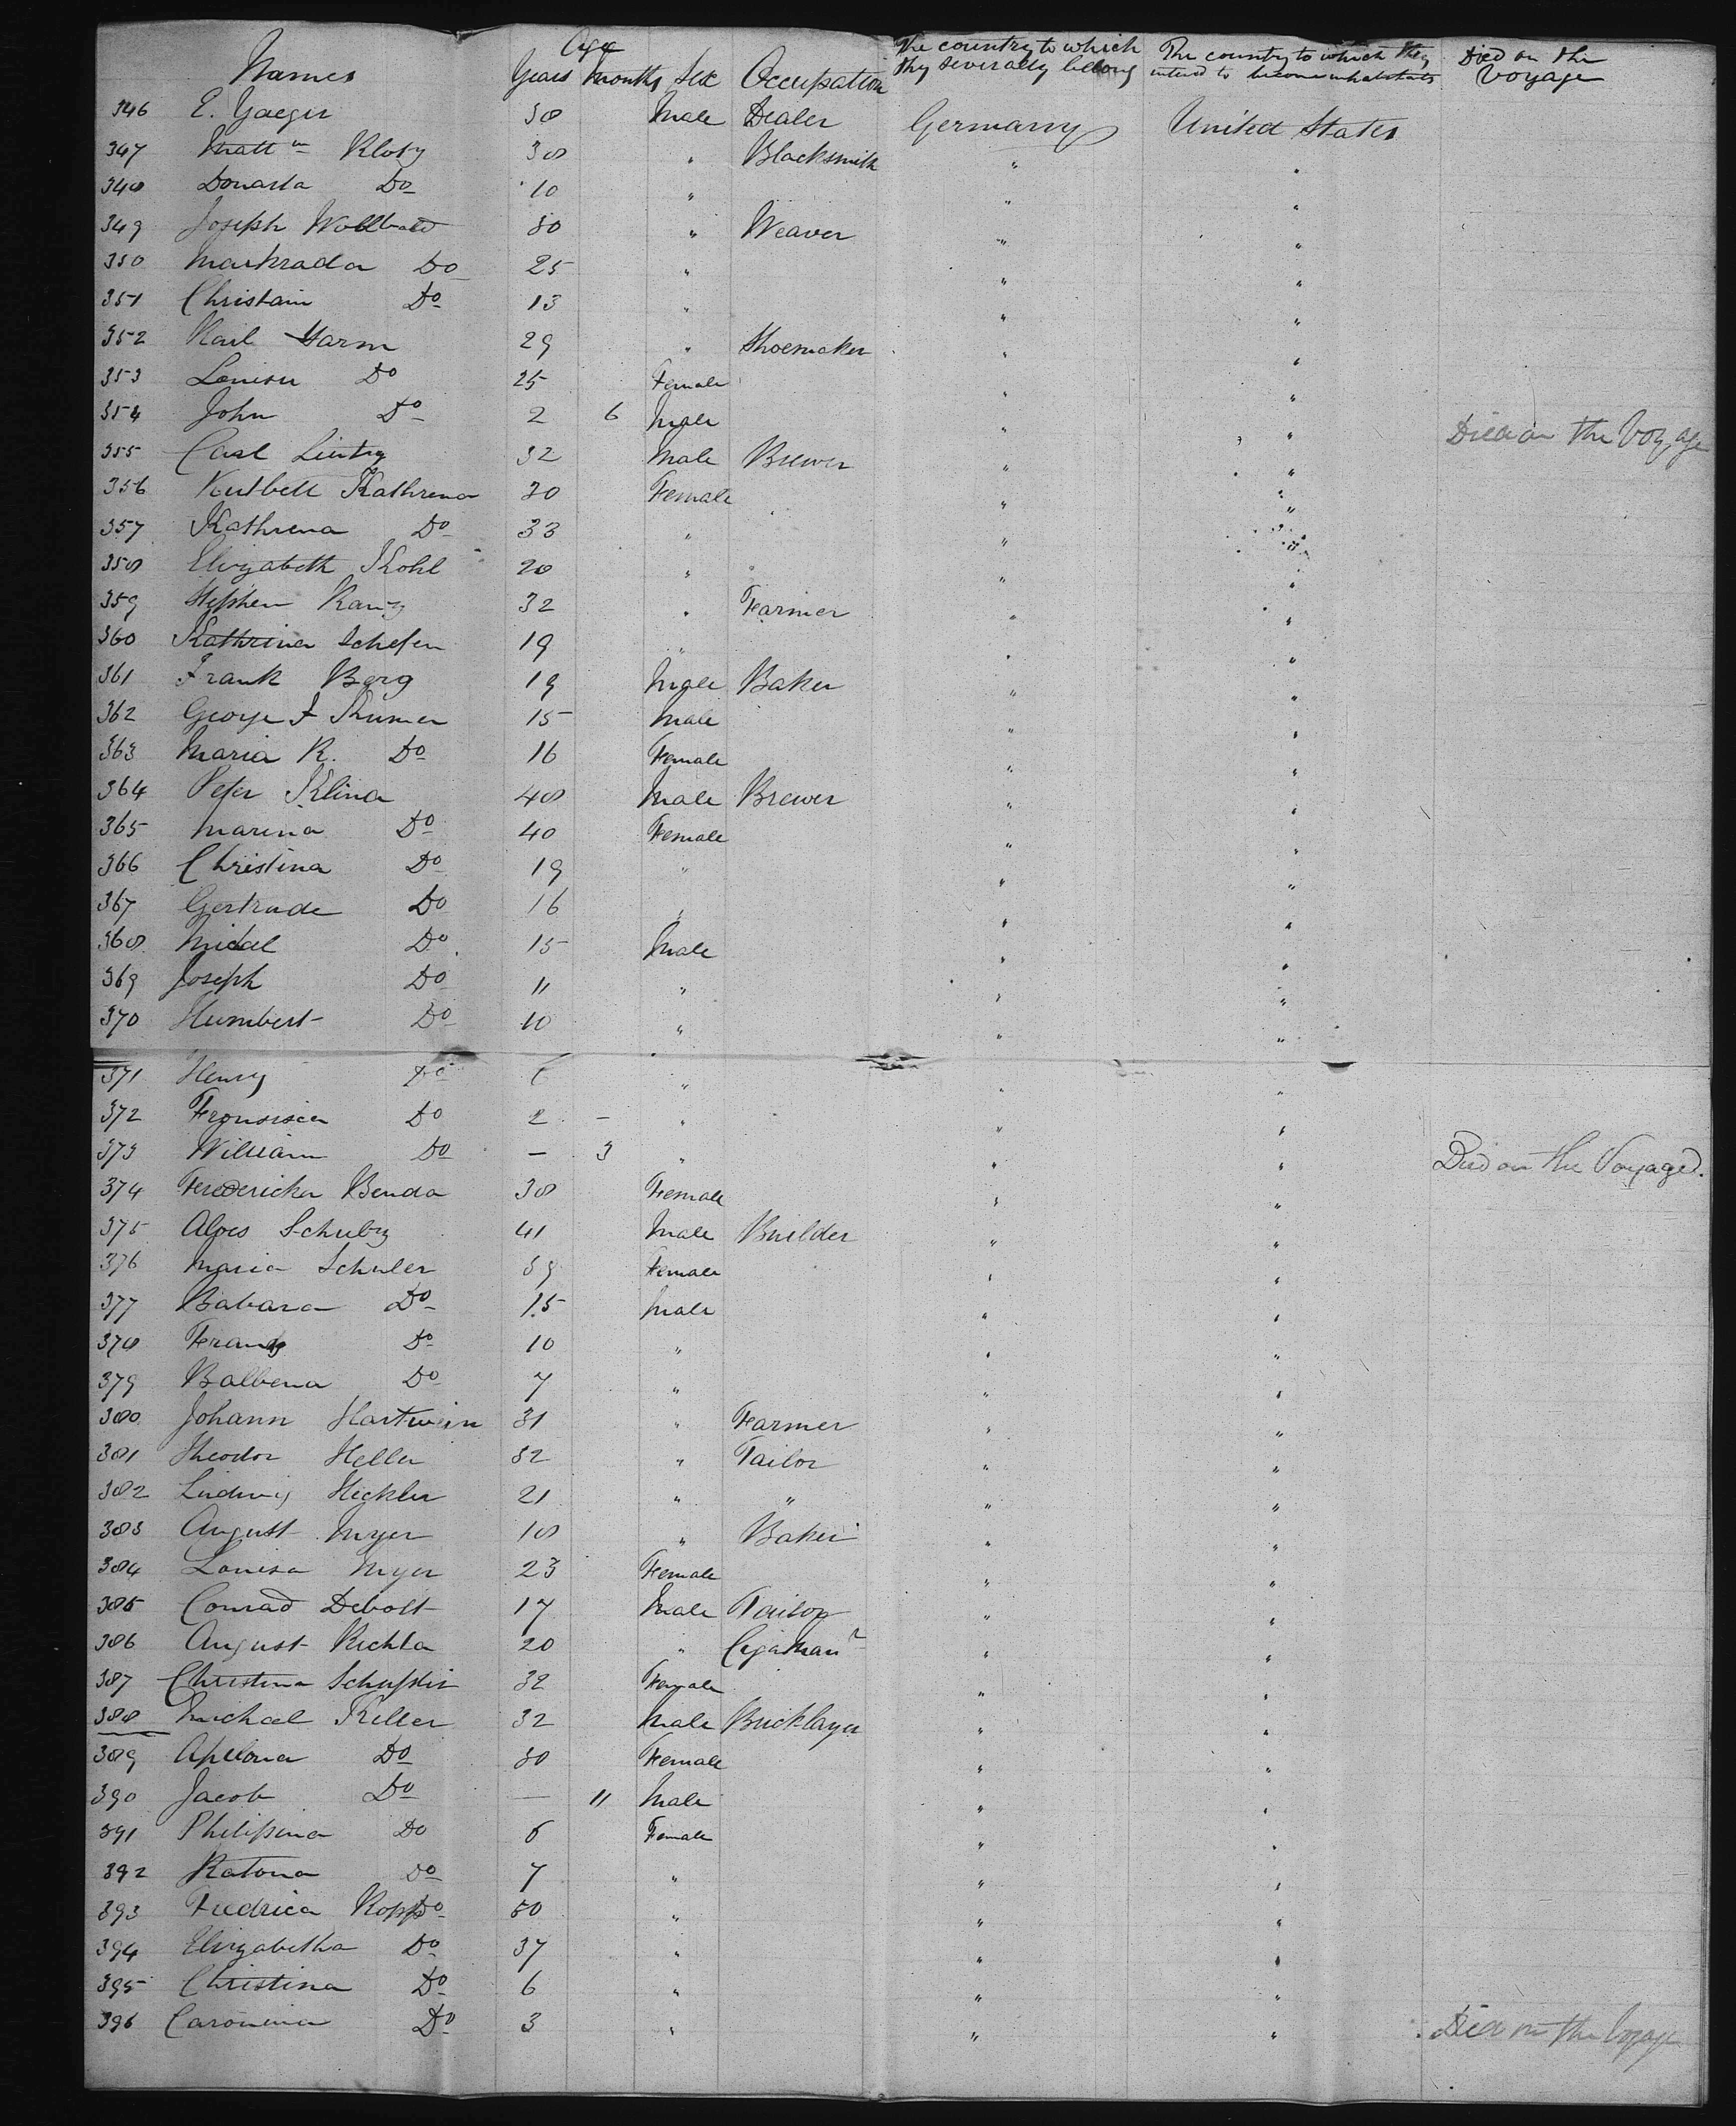 Names Age Years Months Sex Occupation The country to which they severally belong The country to which they intend to become inhabitants Died on the Voyage
346 E. Yaeger 38 Male Dealer Germany United States
347 Matt Klotz 38 " Blacksmith " "
348 Do 10 " " "
349 Joseph 30 " Weaver " "
350 Do 25 " " "
351 Christain Do 13 " " "
352 Karl Harm 29 " Shoemaker " "
353 Louisa Do 25 Female " "
354 John Do 2 6 Male " " Died on the Voyage
355 Carl Lintz 32 Male Brewer " "
356 Kathrena 30 Female " "
357 Kathrena Do 33 " " "
358 Elizabeth Kohl 28 " " "
359 Stephen 32 " Farmer " "
360 Kathrina Schefer 19 " " "
361 Frank Berg 19 Male Baker " "
362 George F 15 Male " "
363 Maria K. Do 16 Female " "
364 Peter Klina 48 Male Brewer " "
365 Marina Do 40 Female " "
366 Christina Do 19 " " "
367 Gertrude Do 16 " " "
368 Do 15 Male " "
369 Joseph Do 11 " " "
370 Humbert Do 10 " " "
371 Henry Do 6 " " "
372 Do 2 - " " "
373 William Do — 3 " " " Died on the Voyage.
374 Fredericka Benda 38 Female " "
375 Alois Schulz 41 Male Builder " "
376 Maria Schuler 39 Female " "
377 Babara Do 15 Male " "
378 Franz Do 10 " " "
379 Balbena Do 7 " " "
380 Johann Hartwein 31 " Farmer " "
381 Theodor Heller 32 " Tailor " "
382 Ludwig Heckler 21 " " " "
383 August Myer 18 " Baker " "
384 Louisa Myer 23 Female " "
385 Conrad Debolt 17 Male Tailor " "
386 August Richla 20 " " "
387 Christina 32 Female " "
388 Michael Keller 32 Male Bricklayer " "
389 Apelona Do 30 Female " "
390 Jacob Do — 11 Male " "
391 Philipina Do 6 Female " "
392 Katona Do 7 " " "
393 Fredrica Kopp Do 50 " " "
394 Elizabetha Do 37 " " "
395 Christina Do 6 " " "
396 Do 3 " " " Died on the Voyage